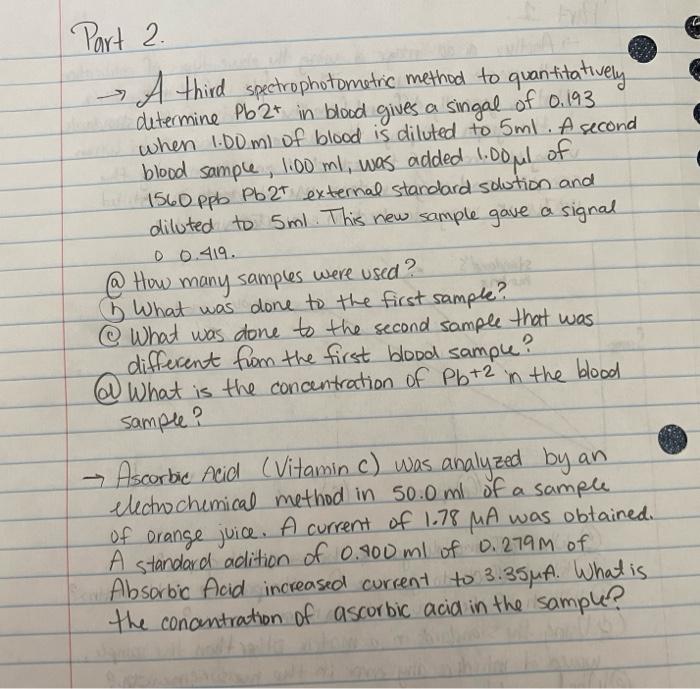 Part 2.
→ A third spectrophotometric method to quantitatively
determine Pb2+ in blood gives a singal of 0.193
when 1.00 ml of blood is diluted to 5ml. A second
blood sample, 1.00 ml, was added 1.00 µl of
1560 ppb Pb2+ external standard solution and
diluted to 5ml. This new sample gave a signal
o 0.419.
ⓐ How many samples were used?
ⓑ What was done to the first sample?
ⓒ What was done to the second sample that was
different from the first blood sample?
ⓓ What is the concentration of Pb+2 in the blood
sample?
→ Ascorbic Acid (Vitamin C) was analyzed by an
electrochemical method in 50.0 ml of a sample
of orange juice. A current of 1.78 µA was obtained.
A standard adition of 0.400 ml of 0.279M of
Absorbic Acid increased current to 3.35µA. What is
the concentration of ascorbic acid in the sample?